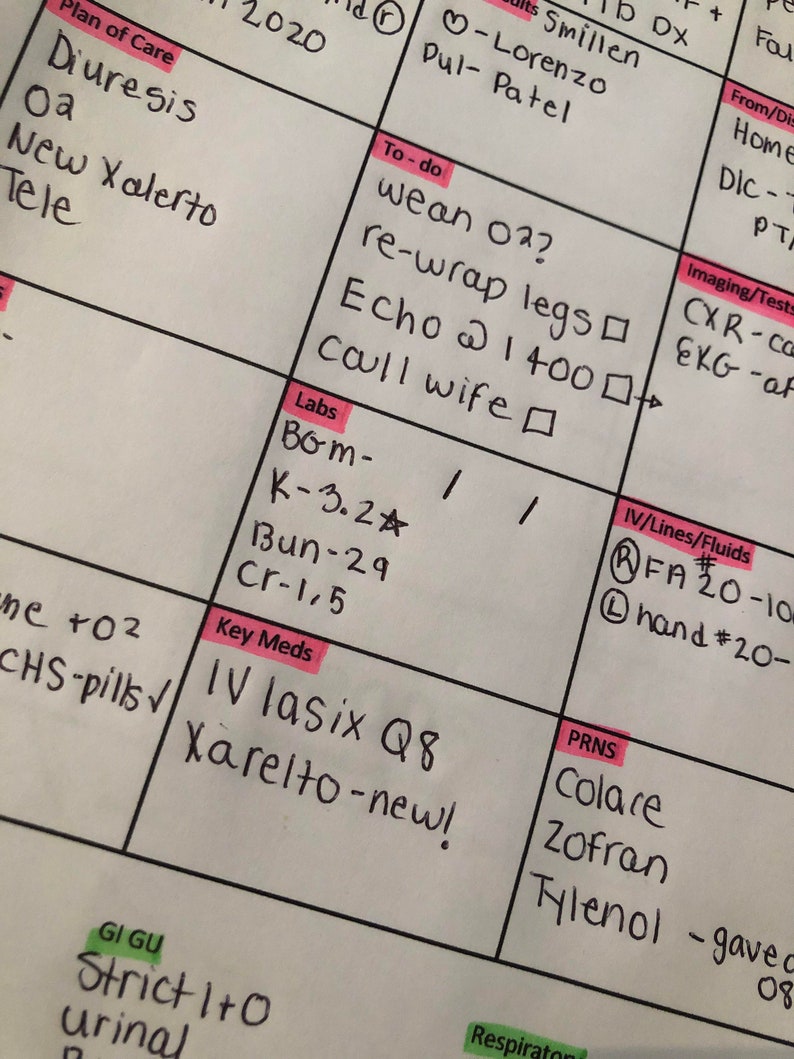 2020
Smillen
♡-Lorenzo
Pul- Patel
Plan of Care
Diuresis
O2
New Xalerto
Tele
To - do
wean O2?
re-wrap legs □
Echo @ 1400 □→
call wife □
From/Dis
Home
DIC-
PT/
Imaging/Tests
CXR-
EKG-
Labs
BGM- / /
K-3.2☆
Bun-29
Cr-1.5
IV/Lines/Fluids
Ⓡ FA #20-
Ⓛ hand #20-
+O2
CHS-pills✓
Key Meds
IV lasix Q8
Xarelto-new!
PRNS
Colace
Zofran
Tylenol -gave
08
GI GU
Strict I+O
urinal
Respiratory